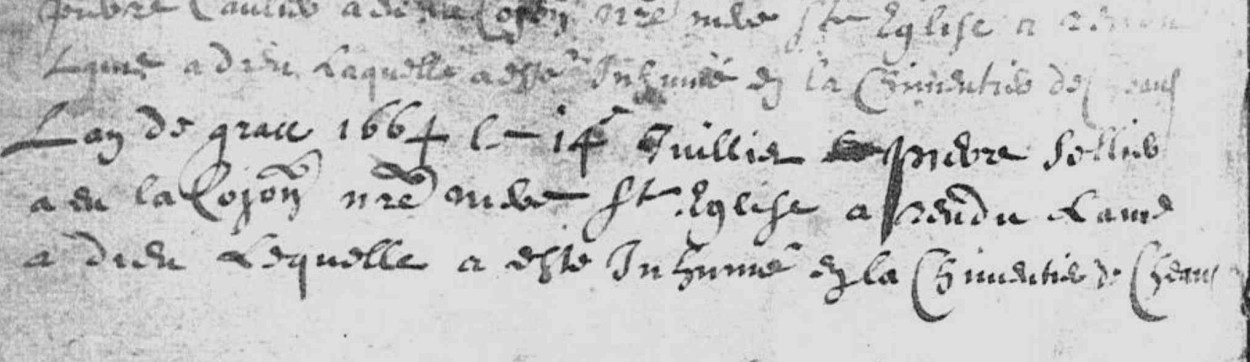 a en la Cojon nre mere ste Eglise a rendu
Lame a dieu Laquelle a este Inhumé en la Chimentiere de Cheaus
Lan de grace 1664 le 14e Juillier pierre sellier
a en la Cojon nre mere ste Eglise a rendu Lame
a dieu Lequelle a este Inhumé en la Chimentiere de Cheaus